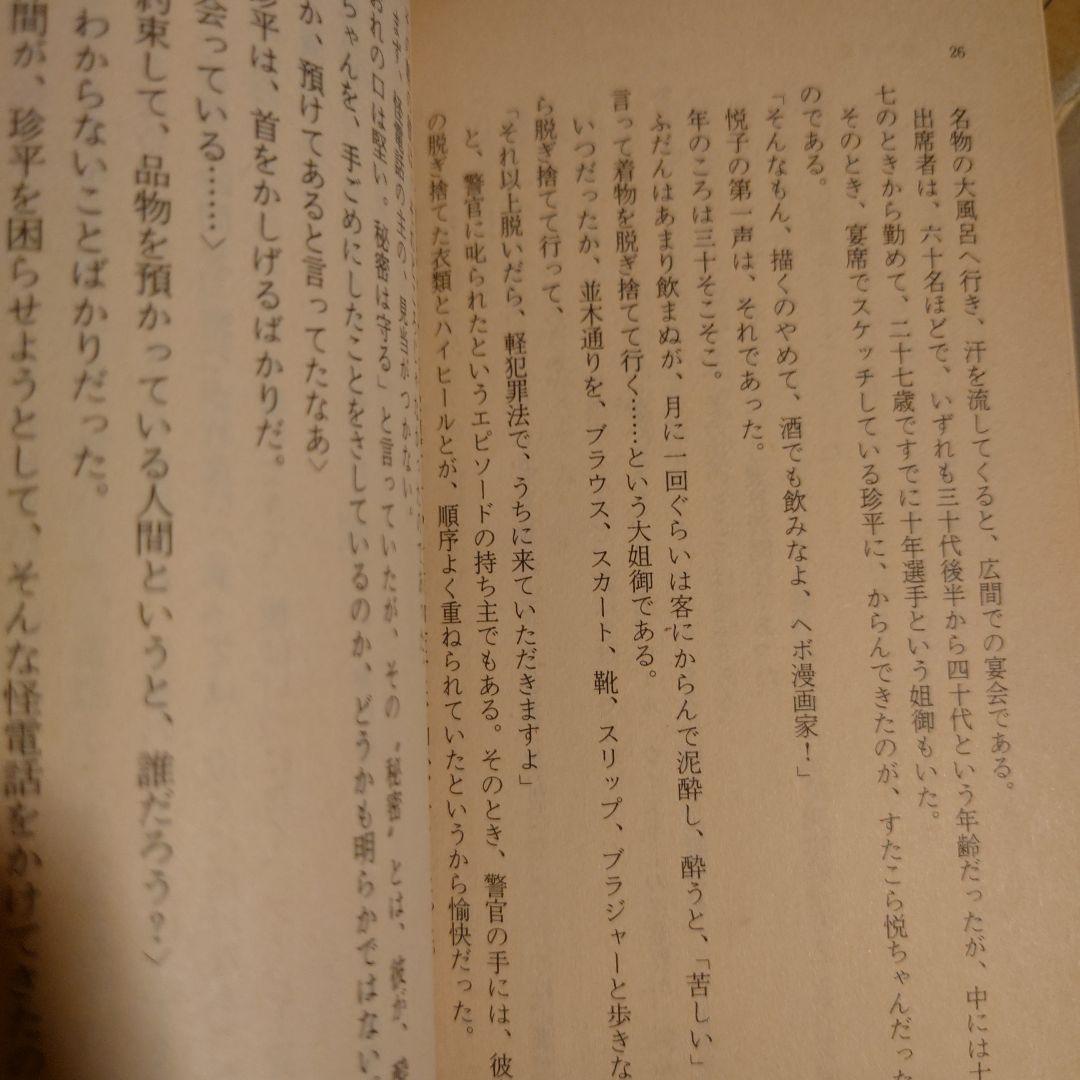 26
名物の大風呂へ行き、汗を流してくると、広間での宴会である。
出席者は、六十名ほどで、いずれも三十代後半から四十代という年齢だったが、中には十
七のときから勤めて、二十七歳ですでに十年選手という姐御もいた。
そのとき、宴席でスケッチしている珍平に、からんできたのが、すたこら悦ちゃんだった
のである。
「そんなもん、描くのやめて、酒でも飲みなよ、ヘボ漫画家！」
悦子の第一声は、それであった。
年のころは三十そこそこ。
ふだんはあまり飲まぬが、月に一回ぐらいは客にからんで泥酔し、酔うと、「苦しい」
言って着物を脱ぎ捨てて行く……という大姐御である。
いつだったか、並木通りを、ブラウス、スカート、靴、スリップ、ブラジャーと歩きな
ら脱ぎ捨てて行って、
「それ以上脱いだら、軽犯罪法で、うちに来ていただきますよ」
と、警官に叱られたというエピソードの持ち主でもある。そのとき、警官の手には、彼
の脱ぎ捨てた衣類とハイヒールとが、順序よく重ねられていたというから愉快だった。
おれの口は堅い。秘密は守る」と言っていたが、その〝秘密〟とは、彼が、
ちゃんを、手ごめにしたことをさしているのか、どうかも明らかではない。
か、預けてあると言ってたなあ〉
珍平は、首をかしげるばかりだ。
会っている……〉
約束して、品物を預かっている人間というと、誰だろう？〉
わからないことばかりだった。
間が、珍平を困らせようとして、そんな怪電話をかけてきたの